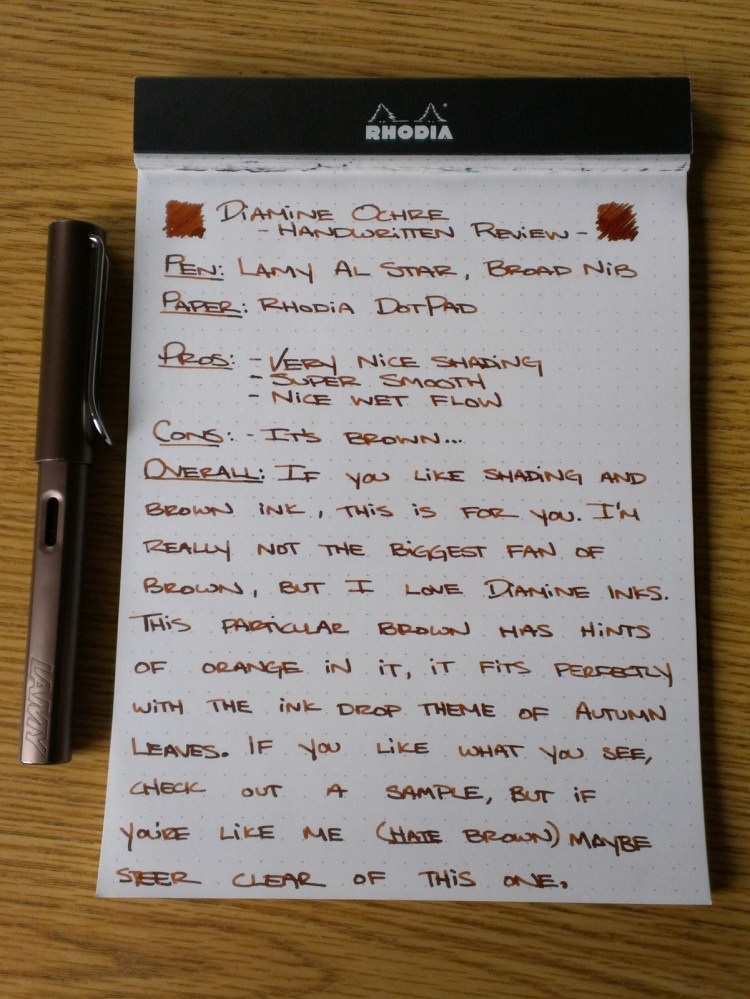 RHODIA
DIAMINE OCHRE
- HANDWRITTEN REVIEW -
PEN: LAMY AL STAR, BROAD NIB
PAPER: RHODIA DOTPAD
PROS: - VERY NICE SHADING
- SUPER SMOOTH
- NICE WET FLOW
CONS: - IT'S BROWN...
OVERALL: IF YOU LIKE SHADING AND
BROWN INK, THIS IS FOR YOU. I'M
REALLY NOT THE BIGGEST FAN OF
BROWN, BUT I LOVE DIAMINE INKS.
THIS PARTICULAR BROWN HAS HINTS
OF ORANGE IN IT, IT FITS PERFECTLY
WITH THE INK DROP THEME OF AUTUMN
LEAVES. IF YOU LIKE WHAT YOU SEE,
CHECK OUT A SAMPLE, BUT IF
YOU'RE LIKE ME (HATE BROWN) MAYBE
STEER CLEAR OF THIS ONE.
LAMY